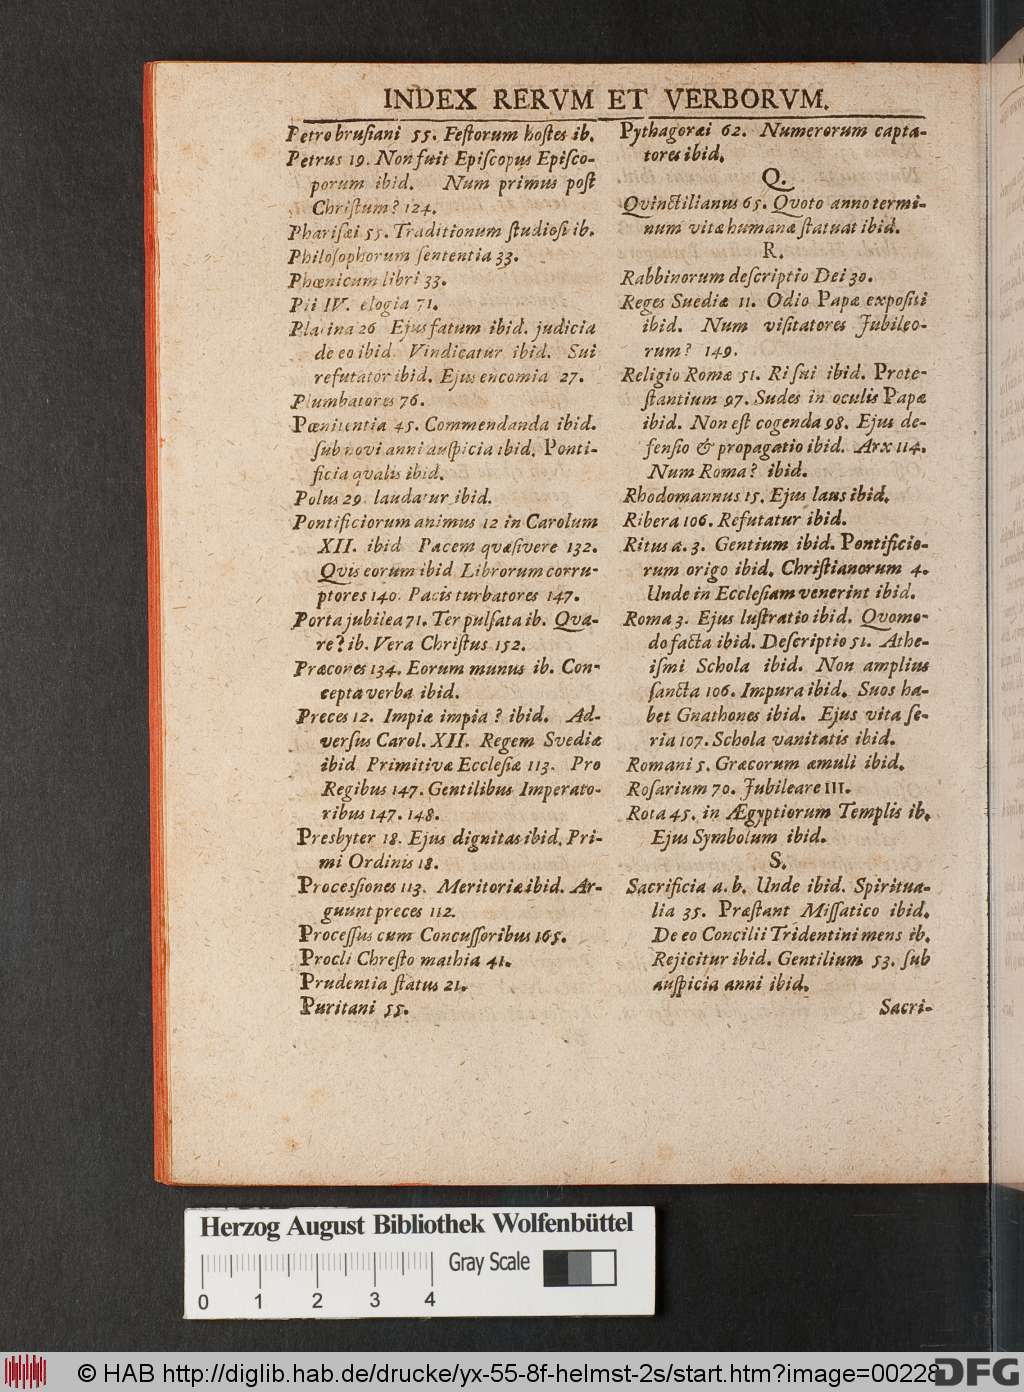 INDEX RERVM ET VERBORVM.
Petrobrusiani 55. Festorum hostes ib.
Petrus 19. Non fuit Episcopus Episco-
porum ibid. Num primus post
Christum? 124.
Pharisæi 55. Traditionum studiosi ib.
Philosophorum sententia 33.
Phœnicum libri 33.
Pii IV. elogia 71.
Platina 26 Ejus fatum ibid. judicia
de eo ibid. Vindicatur ibid. Sui
refutator ibid. Ejus encomia 27.
Plumbatores 76.
Pœnitentia 45. Commendanda ibid.
sub novi anni auspicia ibid. Ponti-
ficia qvalis ibid.
Polus 29. laudatur ibid.
Pontificiorum animus 12 in Carolum
XII. ibid Pacem qvæsivere 132.
Qvis eorum ibid Librorum corru-
ptores 140. Pacis turbatores 147.
Porta jubilea 71. Ter pulsata ib. Qva-
re? ib. Vera Christus 152.
Præcones 134. Eorum munus ib. Con-
cepta verba ibid.
Preces 12. Impiæ impia? ibid. Ad-
versus Carol. XII. Regem Svediæ
ibid Primitivæ Ecclesiæ 113. Pro
Regibus 147. Gentilibus Imperato-
ribus 147. 148.
Presbyter 18. Ejus dignitas ibid. Pri-
mi Ordinis 18.
Processiones 113. Meritoriæ ibid. Ar-
guunt preces 112.
Processus cum Concussoribus 165.
Procli Chrestomathia 41.
Prudentia status 21.
Puritani 55.
Pythagoræi 62. Numerorum capta-
tores ibid.
Q.
Qvinctilianus 65. Qvoto anno termi-
num vitæ humanæ statuat ibid.
R.
Rabbinorum descriptio Dei 30.
Reges Suediæ 11. Odio Papæ expositi
ibid. Num visitatores Jubileo-
rum? 149.
Religio Romæ 51. Risui ibid. Prote-
stantium 97. Sudes in oculis Papæ
ibid. Non est cogenda 98. Ejus de-
fensio & propagatio ibid. Arx 114.
Num Roma? ibid.
Rhodomannus 15. Ejus laus ibid.
Ribera 106. Refutatur ibid.
Ritus a. 3. Gentium ibid. Pontificio-
rum origo ibid. Christianorum 4.
Unde in Ecclesiam venerint ibid.
Roma 3. Ejus lustratio ibid. Qvomo-
do facta ibid. Descriptio 51. Athe-
ismi Schola ibid. Non amplius
sancta 106. Impura ibid. Suos ha-
bet Gnathones ibid. Ejus vita se-
ria 107. Schola vanitatis ibid.
Romani 5. Græcorum æmuli ibid.
Rosarium 70. Jubileare III.
Rota 45. in Ægyptiorum Templis ib.
Ejus Symbolum ibid.
S.
Sacrificia a. b. Unde ibid. Spiritua-
lia 35. Præstant Missatico ibid.
De eo Concilii Tridentini mens ib.
Rejicitur ibid. Gentilium 53. sub
auspicia anni ibid.
Sacri-
Herzog August Bibliothek Wolfenbüttel
Gray Scale
0 1 2 3 4
© HAB http://diglib.hab.de/drucke/yx-55-8f-helmst-2s/start.htm?image=00228
DFG